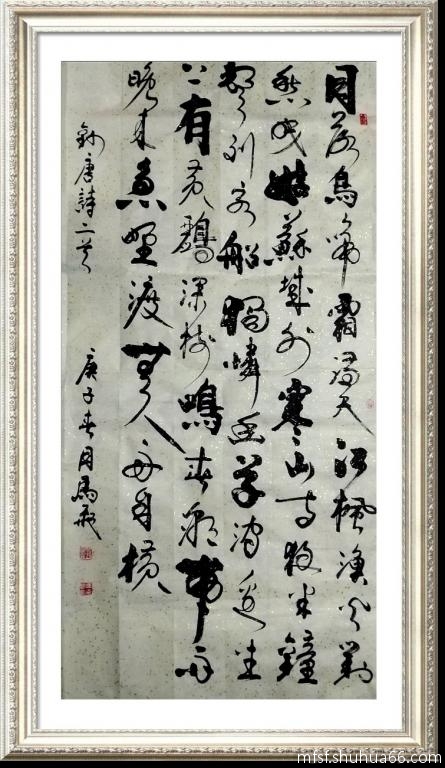 月落烏啼霜滿天江楓漁火對
愁眠姑蘇城外寒山寺夜半鐘
聲到客船獨憐幽草澗邊生
上有黃鸝深樹鳴春潮帶雨
晚來急野渡無人舟自橫
唐詩二首 庚子春月馬飛
mfsf.shuhua66.com